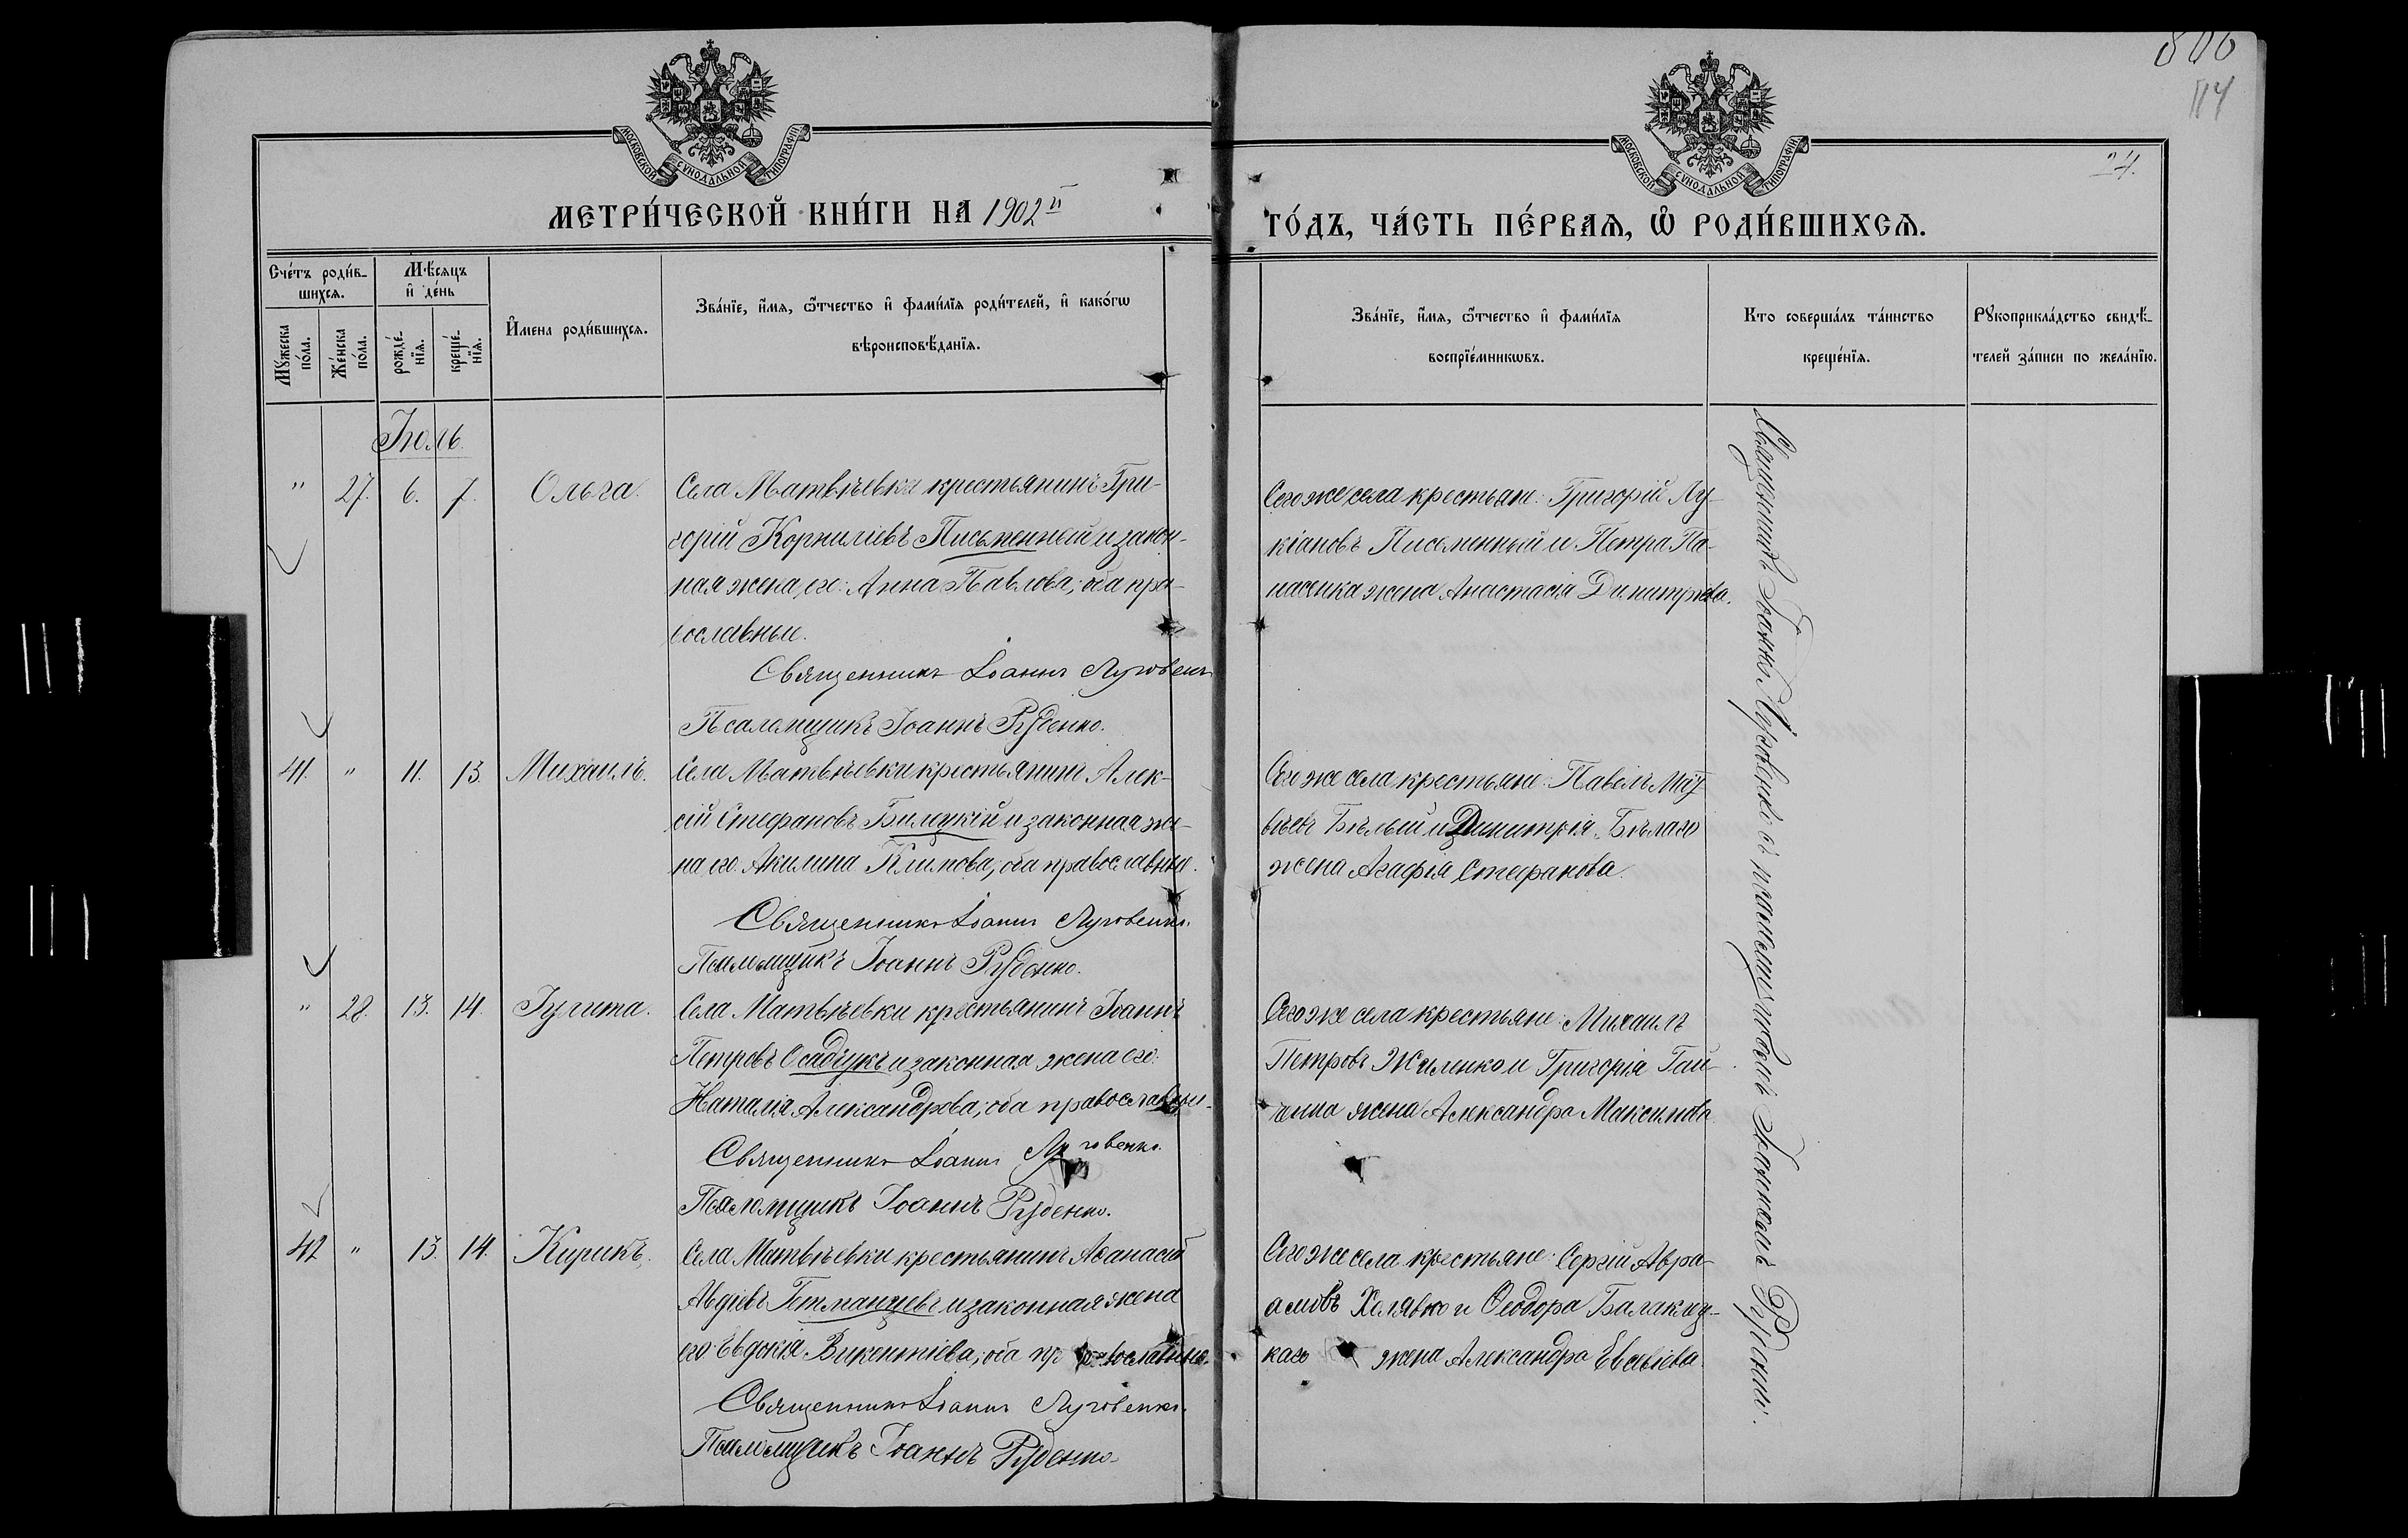 806
114
24.
МОСКОВСКОЙ СѴНОДАЛЬНОЙ ТИПОГРАФІИ
МОСКОВСКОЙ СѴНОДАЛЬНОЙ ТИПОГРАФІИ
МЕТРИ́ЧЕСКОЙ КНИ́ГИ НА 1902й
ГО́ДЪ, ЧА́СТЬ ПЕ́РВАѦ, Ѽ РОДИ́ВШИХСѦ.
Сче́тъ роди́в-
шихсѧ.
Мѣ́сяцъ
и҆ де́нь
Мꙋ́жеска по́ла.
Же́нска по́ла.
рожде́-нїѧ.
креще́-нїѧ.
И҆мена роди́вшихсѧ.
Зва́нїе, и҆́мѧ, ѻ҆́тчество и҆ фами́лїѧ роди́телей, и҆ како́гѡ
вѣроисповѣ́данїѧ.
Зва́нїе, и҆́мѧ, ѻ҆́тчество и҆ фами́лїѧ
воспрїе́мникѡвъ.
Кто соверша́лъ та́инство
креще́нїѧ.
Рꙋкоприкла́дство свидѣ́-
телей за́писи по жела́нїю.
Іюль.
" 27. 6. 7. Ольга. Села Матвѣевки крестьянинъ Гри-
горій Корниліевъ Письменный и закон-
ная жена его: Анна Павлова; оба пра-
вославные.
Священникъ Іоаннъ Луговенко
Псаломщикъ Іоаннъ Руденко.
Сего же села крестьяне: Григорій Лу-
кіановъ Письменный и Петра Па-
насенка жена Анастасія Димитріева.
41. " 11. 13. Михаилъ. Села Матвѣевки крестьянинъ Алек-
сій Стефановъ Билецкій и законная же-
на его Акилина Климова; оба православные.
Священникъ Іоаннъ Луговенко.
Псаломщикъ Іоаннъ Руденко.
Сего же села крестьяне: Павелъ Мат-
вѣевъ Бѣлый и Димитрія Бѣлаго
жена Агафія Стефанова.
" 28. 13. 14. Іулита. Села Матвѣевки крестьянинъ Іоаннъ
Петровъ Осадчукъ и законная жена его:
Наталія Александрова; оба православные.
Священникъ Іоаннъ Луговенко.
Псаломщикъ Іоаннъ Руденко.
Сего же села крестьяне: Михаилъ
Петровъ Жиленко и Григорія Гай-
жена Александра Максимова
42 " 13. 14. Кирикъ. Села Матвѣевки крестьянинъ Аѳанасій
Авдіевъ Гетманцевъ и законная жена
его: Евдокія Викентіева; оба православные.
Священникъ Іоаннъ Луговенко.
Псаломщикъ Іоаннъ Руденко.
Сего же села крестьяне: Сергій Авра-
амовъ Халявко и Ѳеодора Балаклиц-
каго жена Александра Евсевіева
Священникъ Іоаннъ Луговенко съ псаломщикомъ Іоанномъ Руденко.